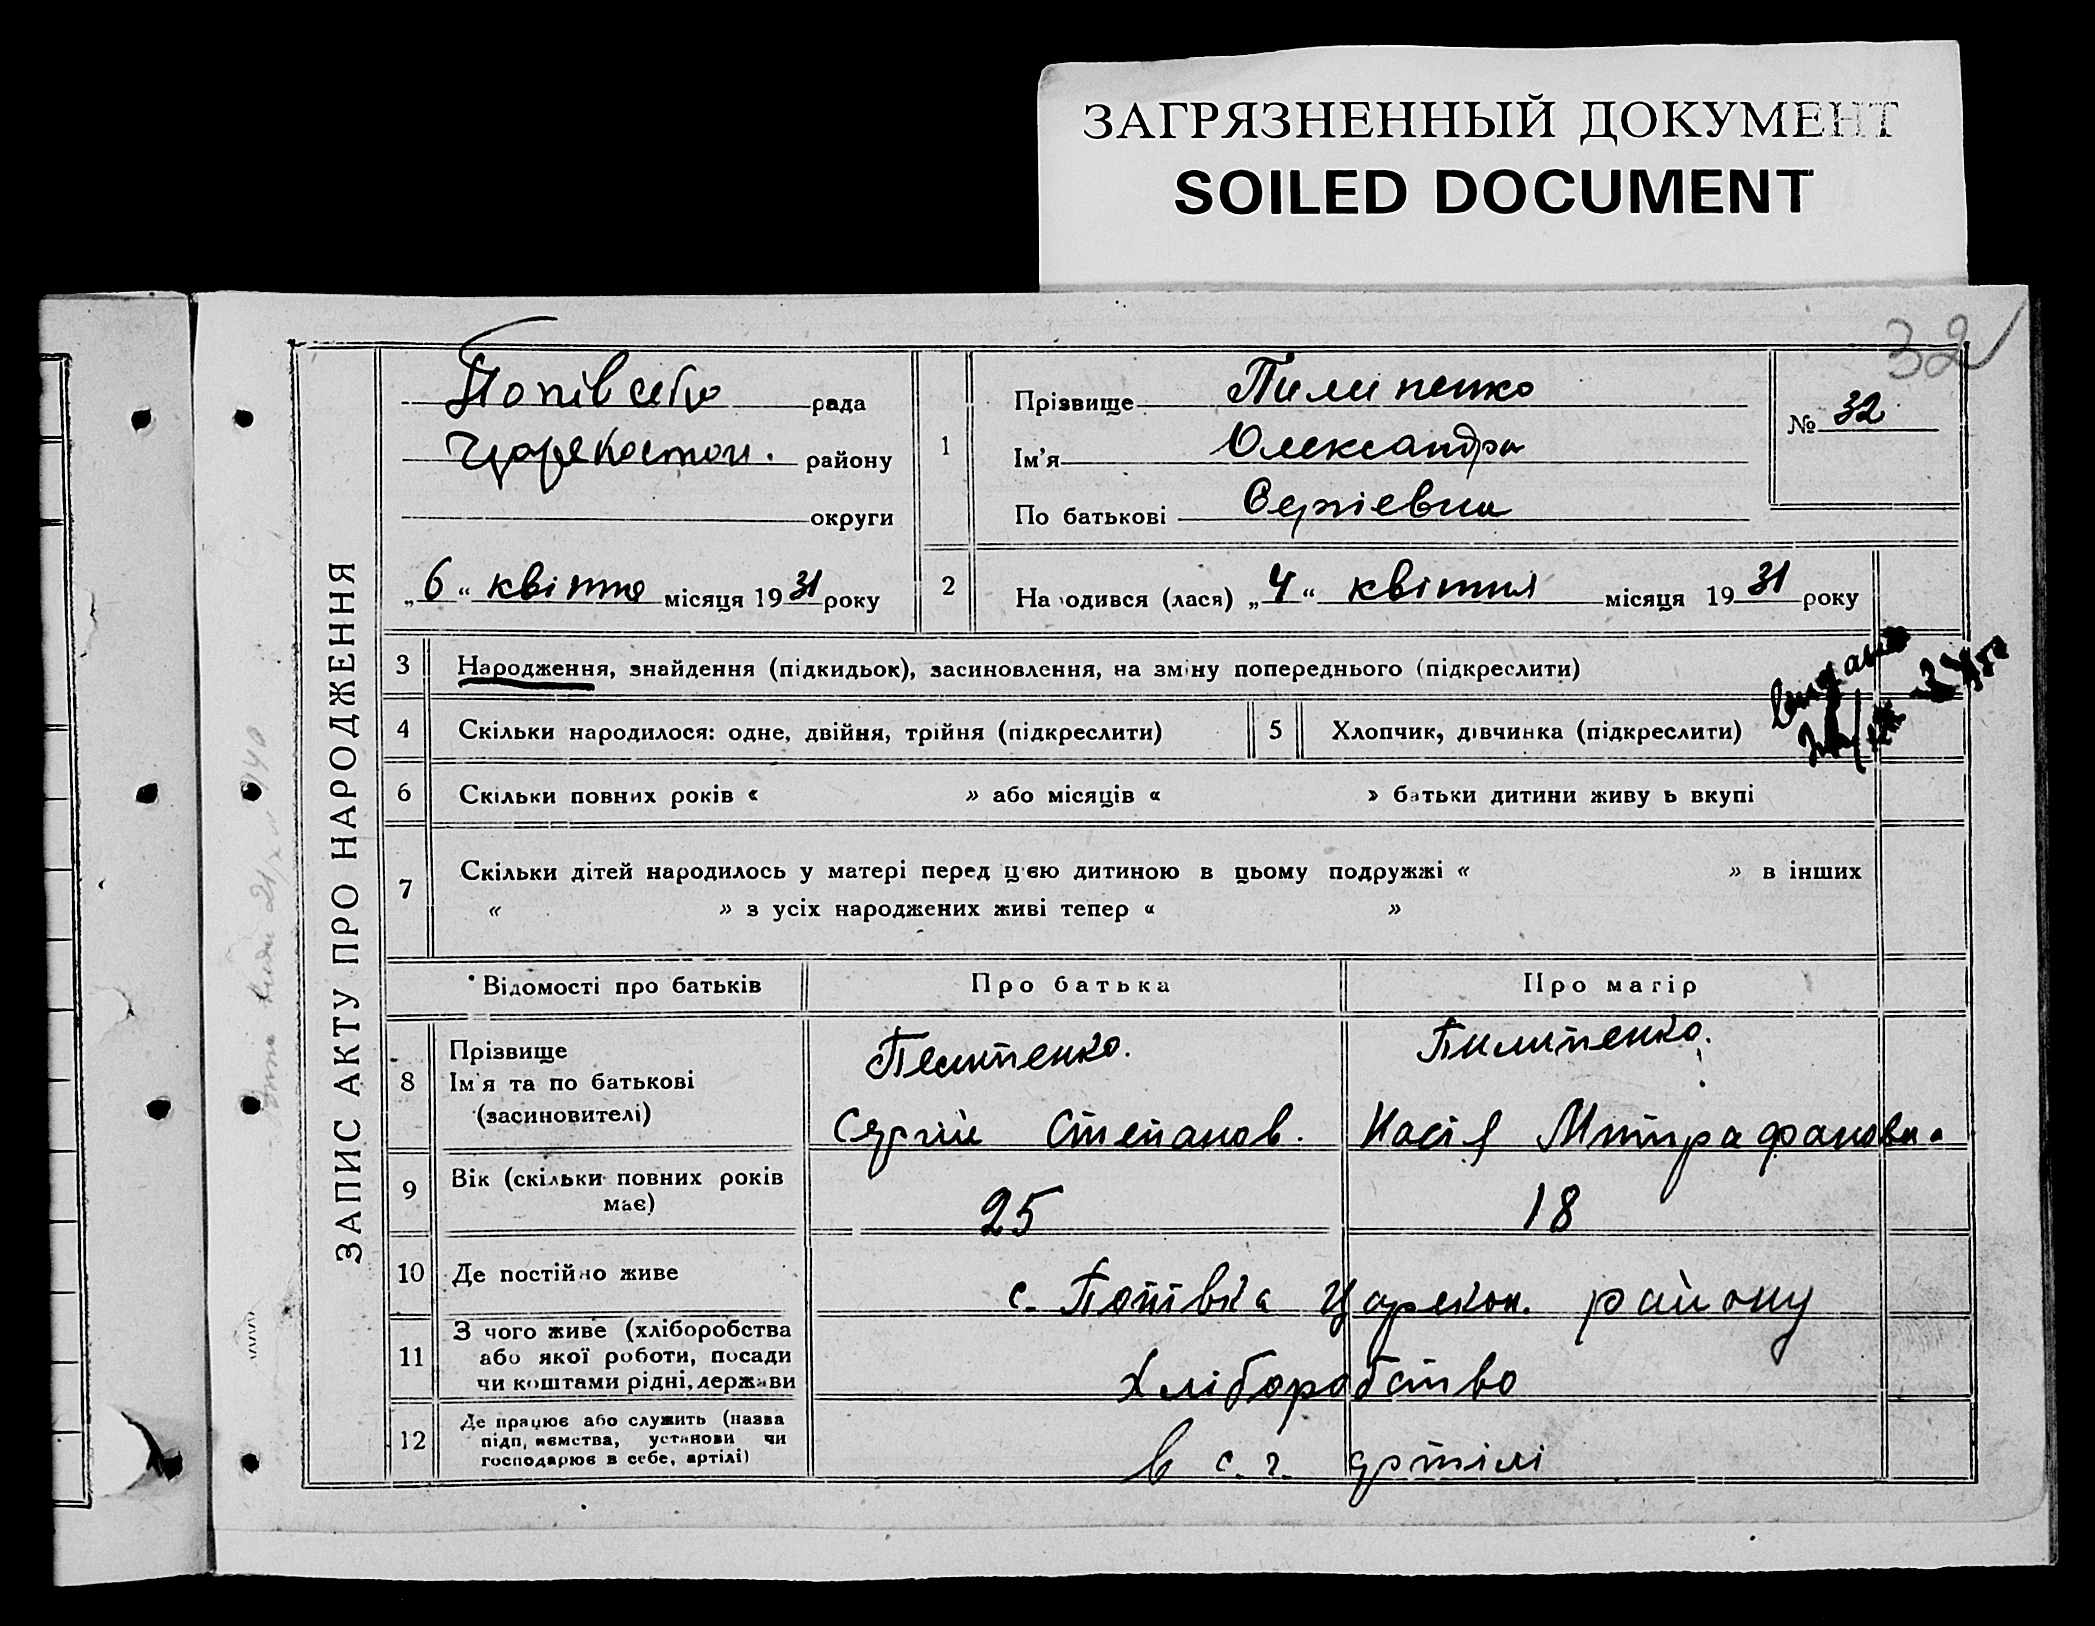 ЗАГРЯЗНЕННЫЙ ДОКУМЕНТ
SOILED DOCUMENT
32
ЗАПИС АКТУ ПРО НАРОДЖЕННЯ
рада
району
округи
„6“ квітня місяця 1931 року
1
Прізвище Пилипенко
Ім'я Олександра
По батькові Сергіевна
№ 32
2 На одився (лася) „4“ квітня місяця 1931 року
3 Народження, знайдення (підкидьок), засиновлення, на зміну попереднього (підкреслити)
4 Скільки народилося: одне, двійня, трійня (підкреслити)
5 Хлопчик, дівчинка (підкреслити)
6 Скільки повних років « » або місяців « » батьки дитини живу ь вкупі
7 Скільки дітей народилось у матері перед цією дитиною в цьому подружжі « » в інших
« » з усіх народжених живі тепер « »
Відомості про батьків Про батька Про матір
8 Прізвище
Ім'я та по батькові
(засиновителі)
Пилипенко.
Сергій Степанов.
Пилипенко.
Насія Митрафановн.
9 Вік (скільки повних років
має)
25 18
10 Де постійно живе с. Попівка Царекон. району
11 З чого живе (хліборобства
або якої роботи, посади
чи коштами рідні, держави
Хліборобство
12 Де працює або служить (назва
підп, иємства, установи чи
господарює в себе, артілі)
в с. г. артілі